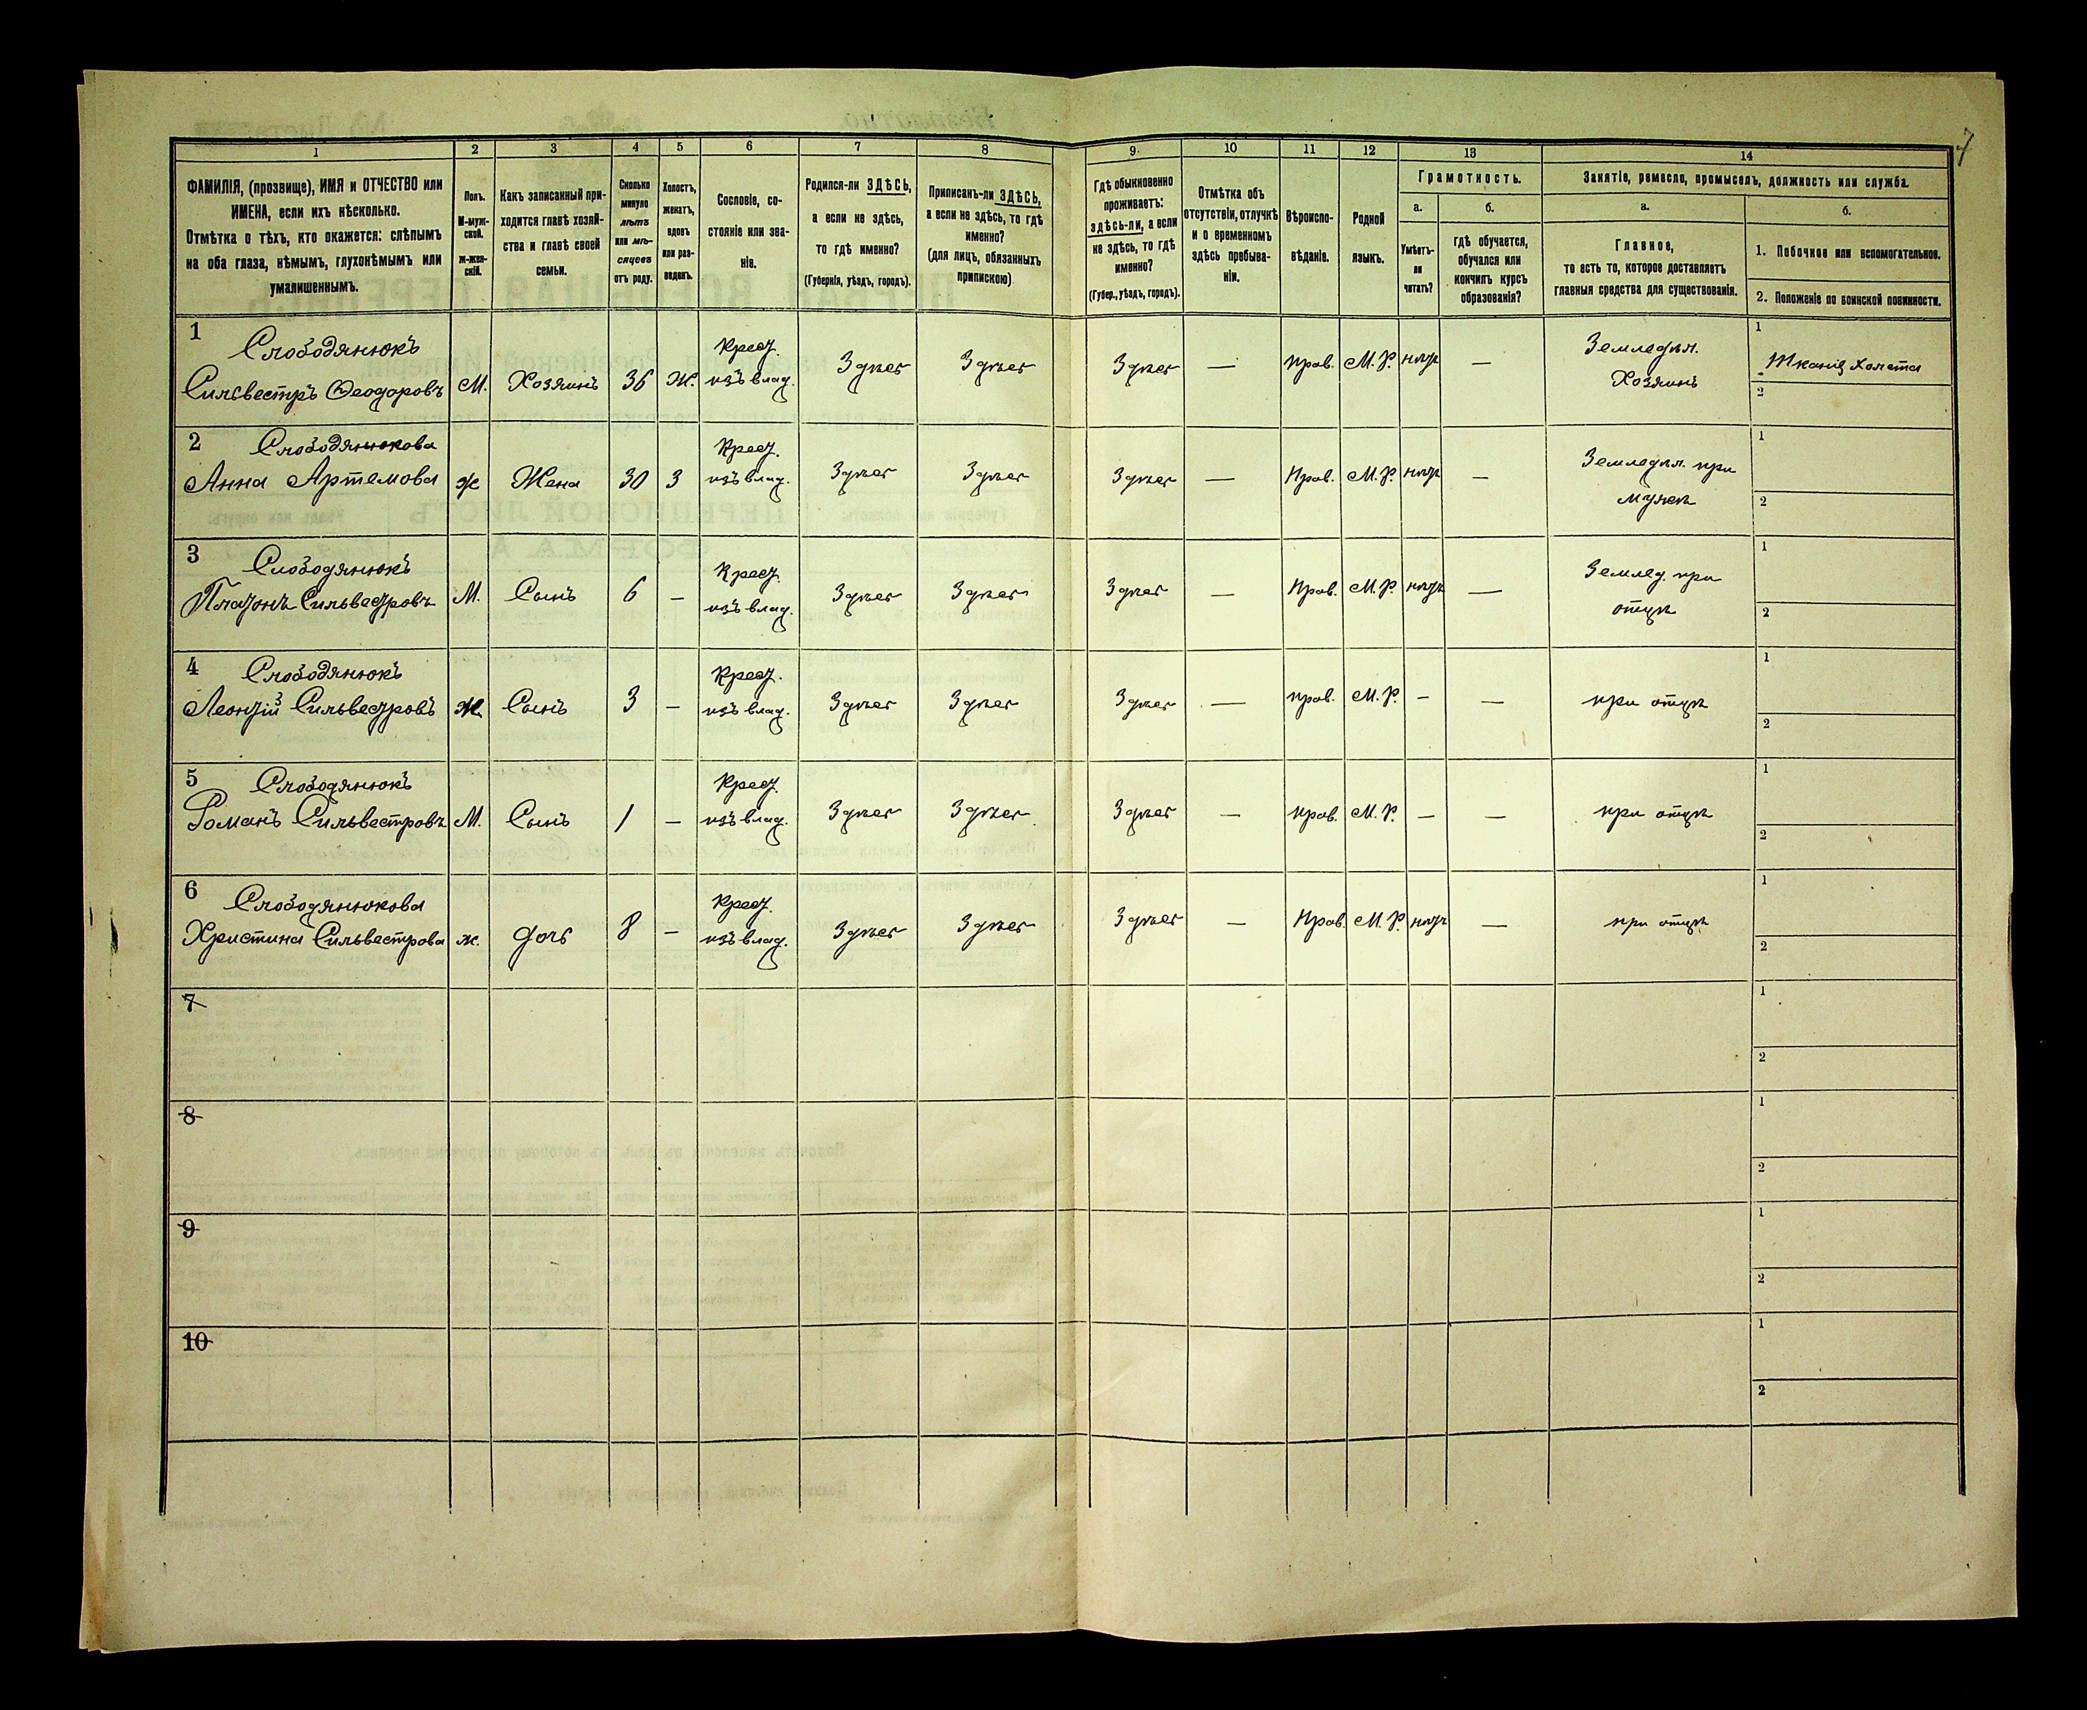 7
1 2 3 4 5 6 7 8 9. 10 11 12 13 14
ФАМИЛІЯ, (прозвище), ИМЯ и ОТЧЕСТВО или
ИМЕНА, если ихъ нѣсколько.
Отмѣтка о тѣхъ, кто окажется: слѣпымъ
на оба глаза, нѣмымъ, глухонѣмымъ или
умалишеннымъ.
Полъ.
М-муж-
ской.
ж-жен-
скій.
Какъ записанный при-
ходится главѣ хозяй-
ства и главѣ своей
семьи.
Сколько
минуло
лѣтъ
или мѣ-
сяцевъ
отъ роду.
Холостъ,
женатъ,
вдовъ
или раз-
веденъ.
Сословіе, со-
стояніе или зва-
ніе.
Родился-ли ЗДѢСЬ,
а если не здѣсь,
то гдѣ именно?
(Губернія, уѣздъ, городъ).
Приписанъ-ли ЗДѢСЬ,
а если не здѣсь, то гдѣ
именно?
(для лицъ, обязанныхъ
припискою)
Гдѣ обыкновенно
проживаетъ:
здѣсь-ли, а если
не здѣсь, то гдѣ
именно?
(Губер., уѣздъ, городъ).
Отмѣтка объ
отсутствіи, отлучкѣ
и о временномъ
здѣсь пребыва-
ніи.
Вѣроиспо-
вѣданіе.
Родной
языкъ.
Грамотность.
а.
Умѣетъ-
ли
читать?
б.
Гдѣ обучается,
обучался или
кончилъ курсъ
образованія?
Занятіе, ремесло, промыселъ, должность или служба.
а.
Главное,
то есть то, которое доставляетъ
главныя средства для существованія.
б.
1. Побочное или вспомогательное.
2. Положеніе по воинской повинности.
1 Слободянюкъ Крест. Земледѣл. 1
Сильвестръ Ѳеодоровъ М. Хозяинъ 36 Ж. изъ влад. Здѣсь Здѣсь Здѣсь — Прав. М. Р. нѣтъ — Хозяинъ
2
2 Слободянюкова Крест. Земледѣл. при 1
Анна Артемова ж Жена 30 З изъ влад. Здѣсь Здѣсь Здѣсь — Прав. М. Р. нѣтъ — мужѣ 2
3 Слободянюкъ Крест. Землед. при 1
Платонъ Сильвестровъ М. Сынъ 6 — изъ влад. Здѣсь Здѣсь Здѣсь — Прав. М. Р. нѣтъ — отцѣ 2
4 Слободянюкъ Крест. 1
Леонтій Сильвестровъ Сынъ 3 — изъ влад. Здѣсь Здѣсь Здѣсь — прав. М. Р. — — при отцѣ 2
5 Слободянюкъ Крест. 1
Романъ Сильвестровъ М. Сынъ 1 — изъ влад. Здѣсь Здѣсь Здѣсь — прав. М. Р. — — при отцѣ 2
6 Слободянюкова Крест. 1
Христина Сильвестрова ж. дочь 8 — изъ влад. Здѣсь Здѣсь Здѣсь — Прав. М. Р. нѣтъ — при отцѣ 2
7 1
2
8 1
2
9 1
2
10 1
2